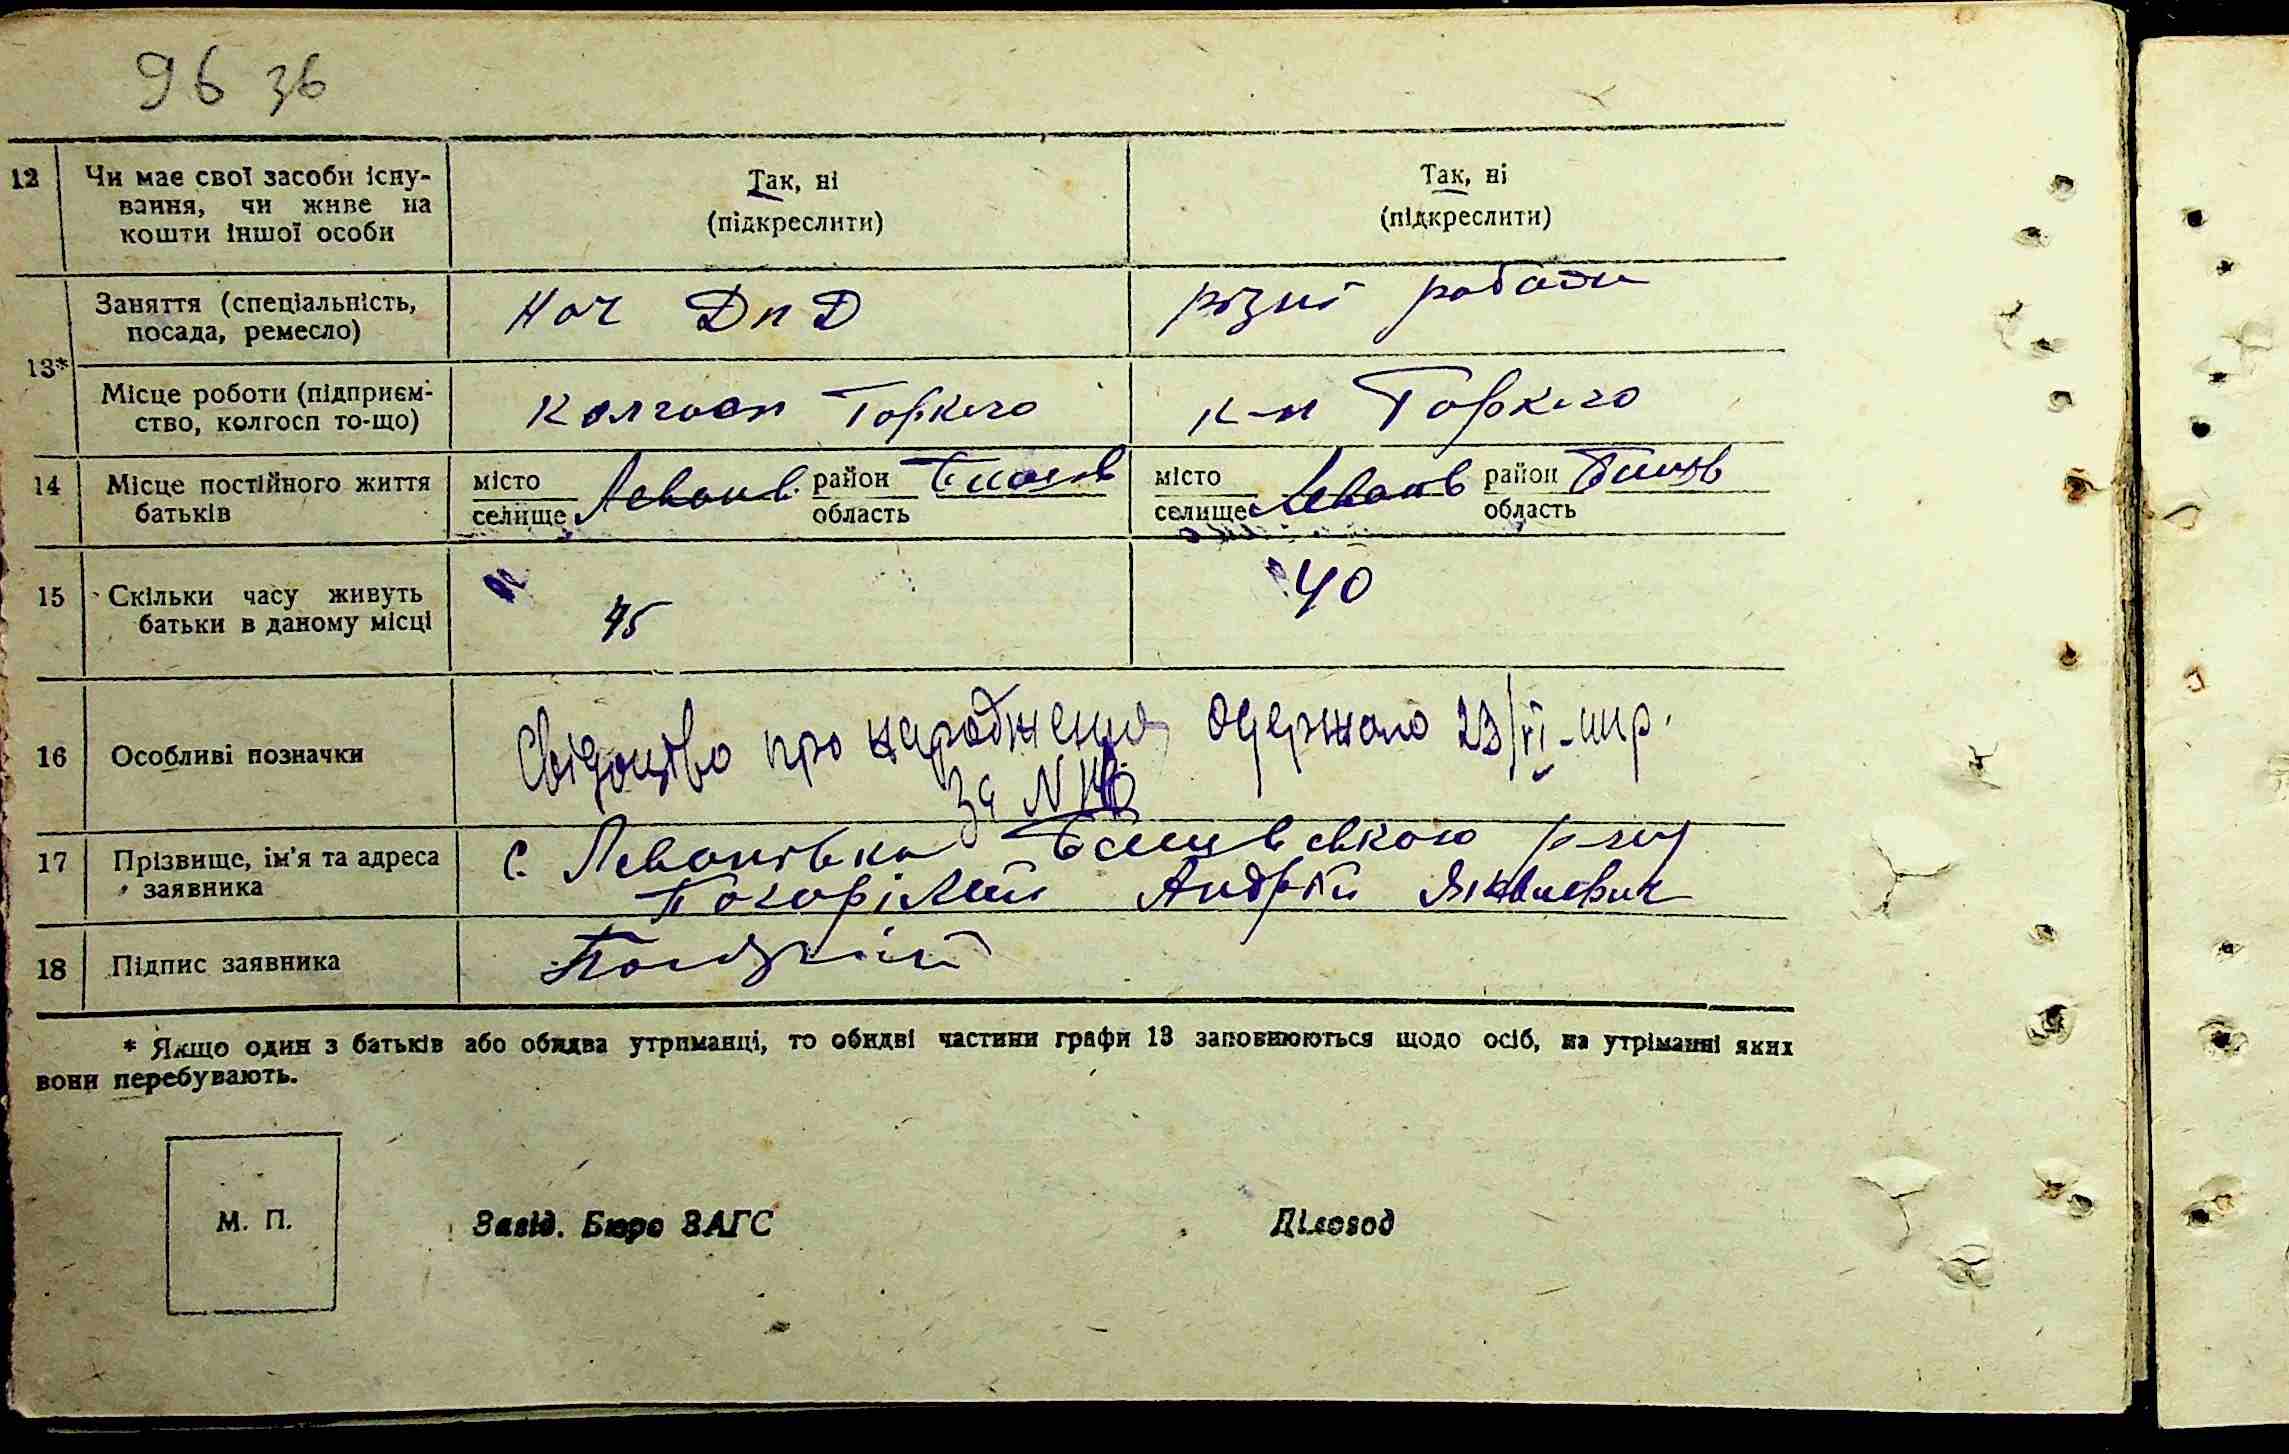 96 36
12 Чи має свої засоби існу- Так, ні Так, ні
вання, чи живе на (підкреслити) (підкреслити)
кошти іншої особи
13* Заняття (спеціальність, Нач ДПД різні работи
посада, ремесло)
Місце роботи (підприєм- колгосп Горкого к-п Горкого
ство, колгосп то-що)
14 Місце постійного життя місто район місто район
батьків селище область селище область
15 Скільки часу живуть 45 40
батьки в даному місці
16 Особливі позначки Свідоцтво про народження одержало 23/VI-
за N
17 Прізвище, ім'я та адреса с Леванівка
заявника Погорілий Андрій Якович
18 Підпис заявника
* Якщо один з батьків або обидва утриманці, то обидві частини графи 13 заповнюються щодо осіб, на утріманні яких
вони перебувають.
М. П. Завід. Бюро ЗАГС Діловод